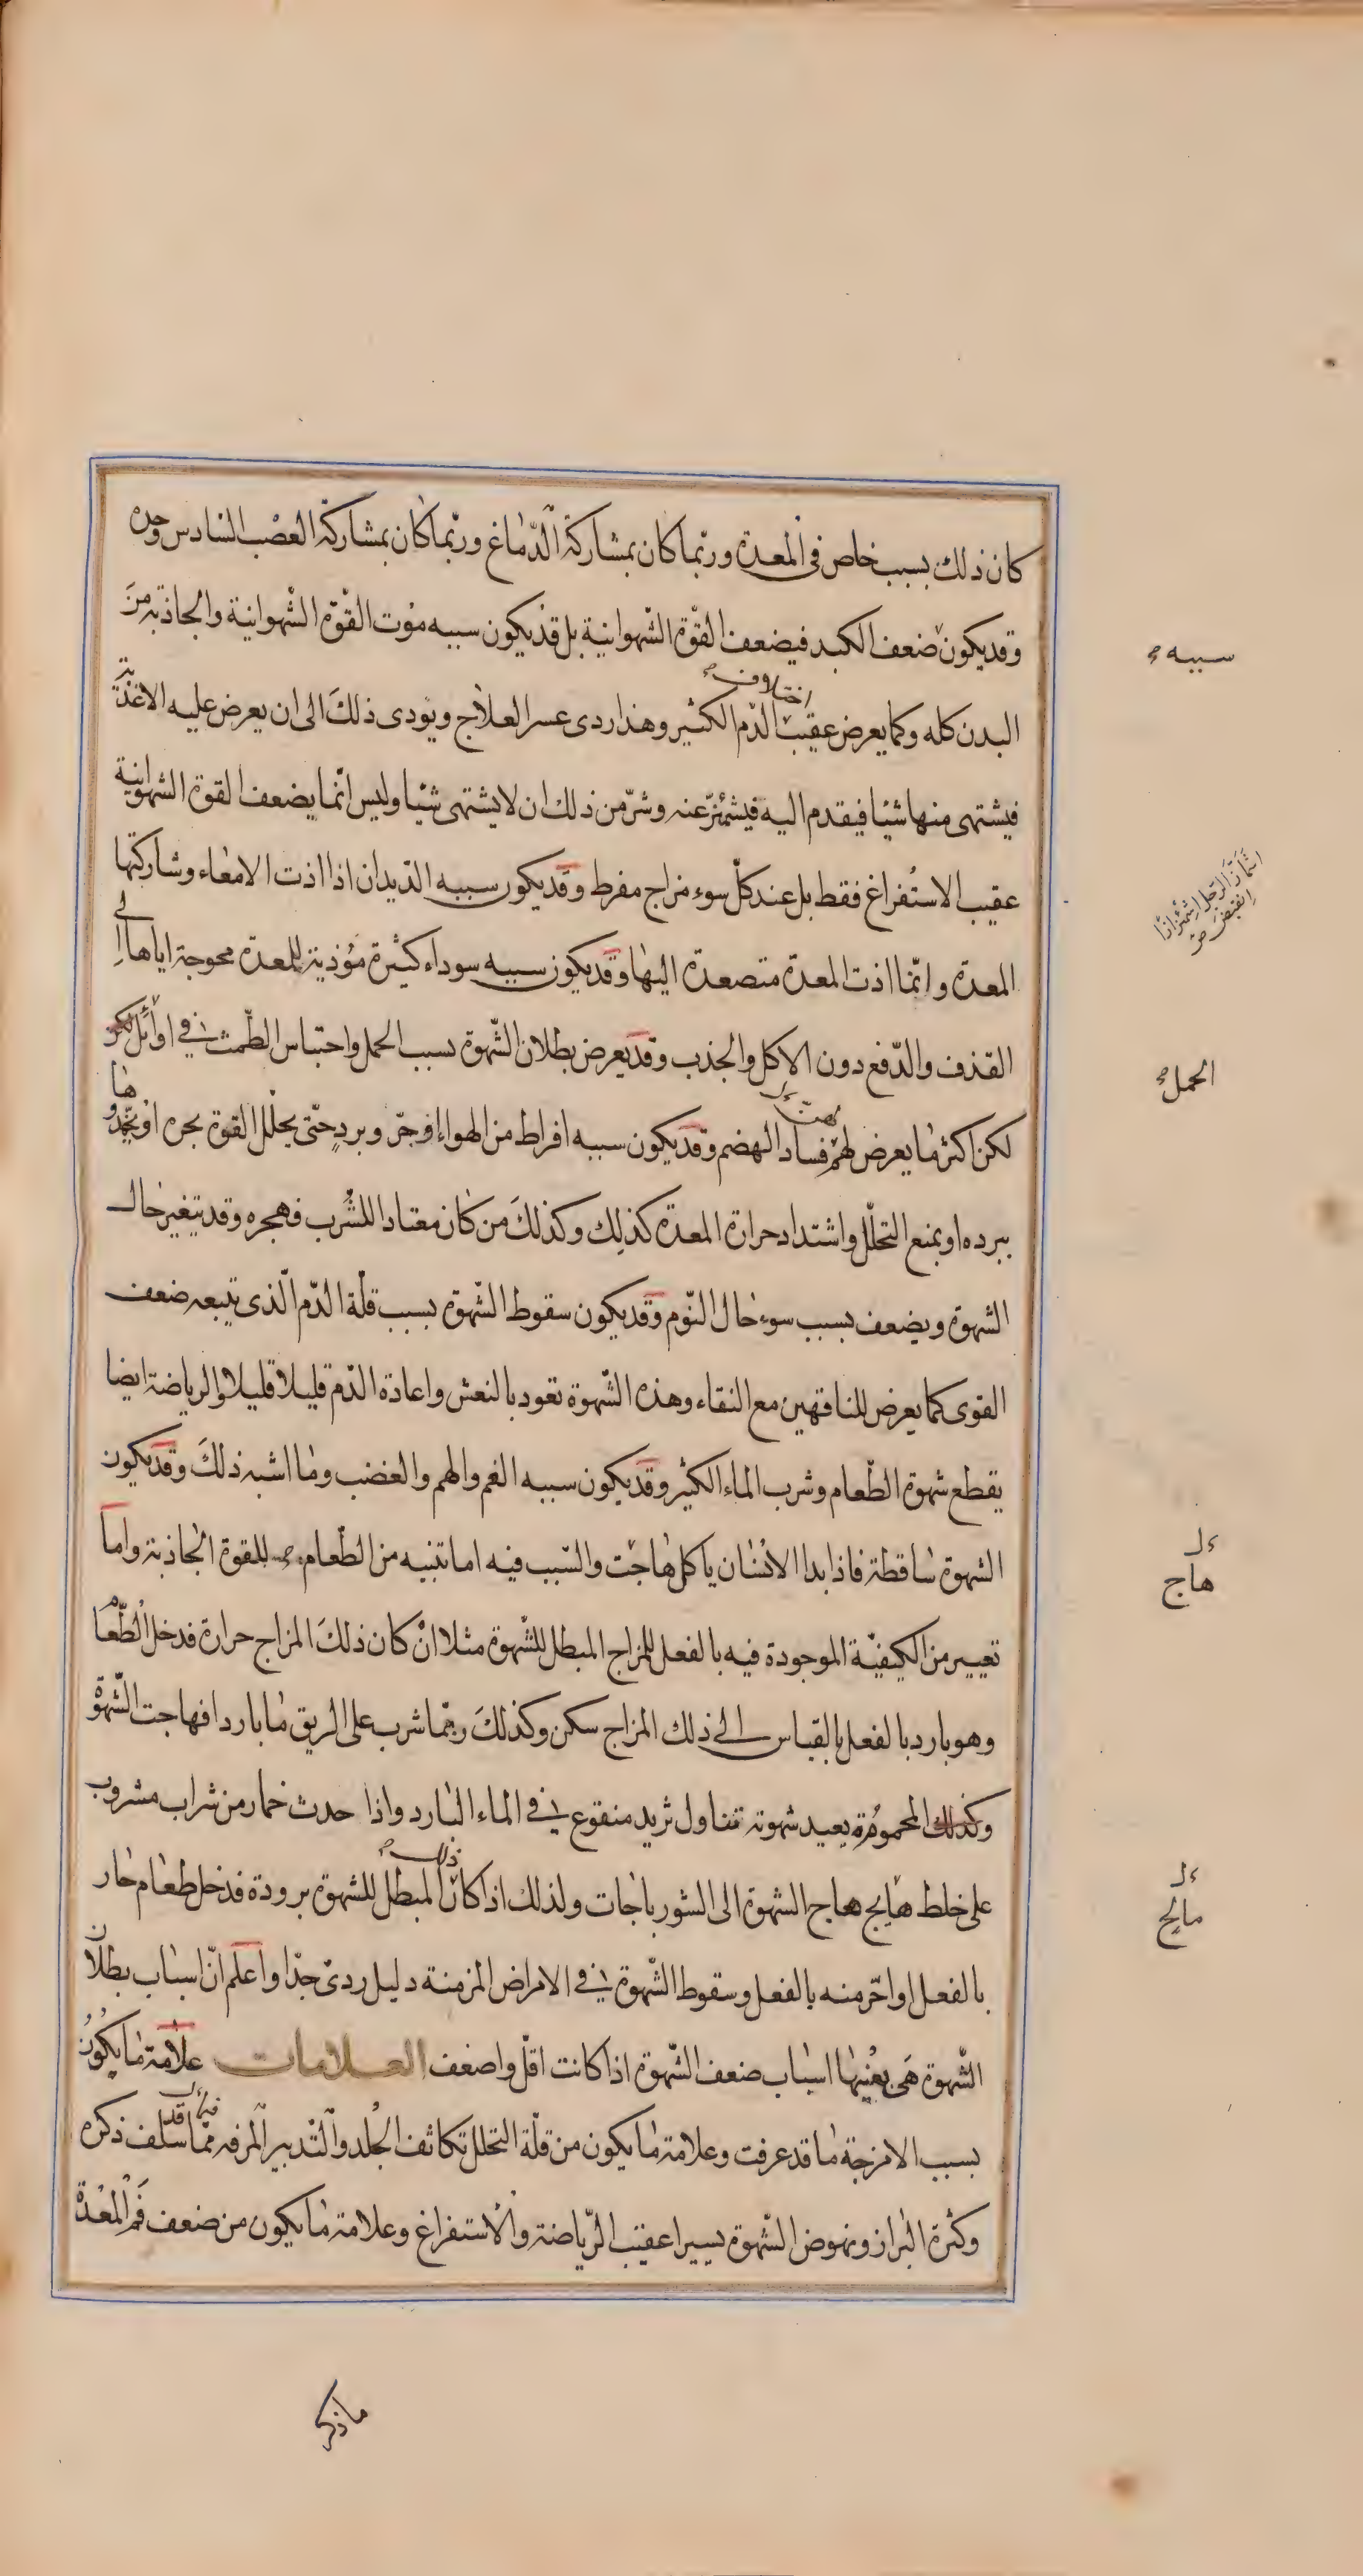 كان ذلك بسبب خاص فى المعدة وربّما كان بمشاركة الدّماغ وربّما كان بمشاركة العصب السادس وحده
وقد يكون ضعف الكبد فيضعف القوّة الشّهوانية بل قد يكون سببه موت القوّة الشّهوانية والجاذبة من
سببه
اختلاف
البدن كله وكما يعرض عقيب الدّم الكثير وهذا ردى عسر العلاج ويودى ذلك الى ان يعرض عليه الاغذية
فيشتهى منها شيئا فيقدم اليه فيشمئزّ عنه وشرّ من ذلك ان لا يشتهى شيئا وليس انّما يضعف القوة الشهوانية
عقيب الاستفراغ فقط بل عند كلّ سوء مزاج مفرط وقد يكون سببه الدّيدان اذا اذت الامعاء وشاركتها
الرجل اشمئزازا
انقبض
المعدة وانّما اذت المعدة متصعدة اليها وقد يكون سببه سوداء كثيرة مؤذية للمعدة محوجة اياها الى
القذف والدّفع دون الاكل والجذب وقد يعرض بطلان الشّهوة بسبب الحمل واحتباس الطّمث فى اوائل
الحمل
لكن اكثر ما يعرض لهم فساد الهضم وقد يكون سببه افراط من الهواء او حرّ وبرد حتّى يحلّل القوة بحره او يخدرها
ببرده او يمنع التحلّل واشتداد حرارة المعدة كذلك وكذلك من كان معتادا للشرب فهجره وقد يتغير حال
الشهوة ويضعف بسبب سوء حال النّوم وقد يكون سقوط الشّهوة بسبب قلّة الدّم الّذى يتبعه ضعف
القوى كما يعرض للناقهين مع النقاء وهذه الشّهوة تعود بالنعش واعادة الدّم قليلا قليلا والرياضة ايضا
يقطع شهوة الطّعام وشرب الماء الكثير وقد يكون سببه الغم والهم والغضب وما اشبه ذلك وقد يكون
الشهوة ساقطة فاذا بدا الانسان ياكل هاجت والسّبب فيه اما تنبيه من الطّعام للقوة الجاذبة واما
هاج
تغيير من الكيفيّة الموجودة فيه بالفعل للمزاج المبطل للشّهوة مثلا ان كان ذلك المزاج حرارة فدخل الطّعام
وهو بارد بالفعل بالقياس الى ذلك المزاج سكن وكذلك ربّما شرب على الريق ما باردا فهاجت الشّهوة
وكذلك المحمومة يعيد شهوته تناول ثريد منقوع فى الماء البارد واذا حدث خمار من شراب مشروب
ذلك
على خلط هايج هاج الشهوة الى الشورباجات ولذلك اذا كان المبطل للشهوة برودة فدخل طعام حار
مالح
بالفعل او احّر منه بالفعل وسقوط الشّهوة فى الامراض المزمنة دليل ردىّ جدّا واعلم انّ اسباب بطلان
الشّهوة هى بعينها اسباب ضعف الشّهوة اذا كانت اقلّ واضعف العلامات علامة ما يكون
بسبب الامزجة ما قد عرفت وعلامة ما يكون من قلّة التحلل تكاثف الجلد والتّدبير المرفه ممّا قد سلف ذكره
وكثرة البراز ونهوض الشّهوة يسيرا عقيب الرّياضة والاستفراغ وعلامة ما يكون من ضعف فم المعدة
ما ذكر